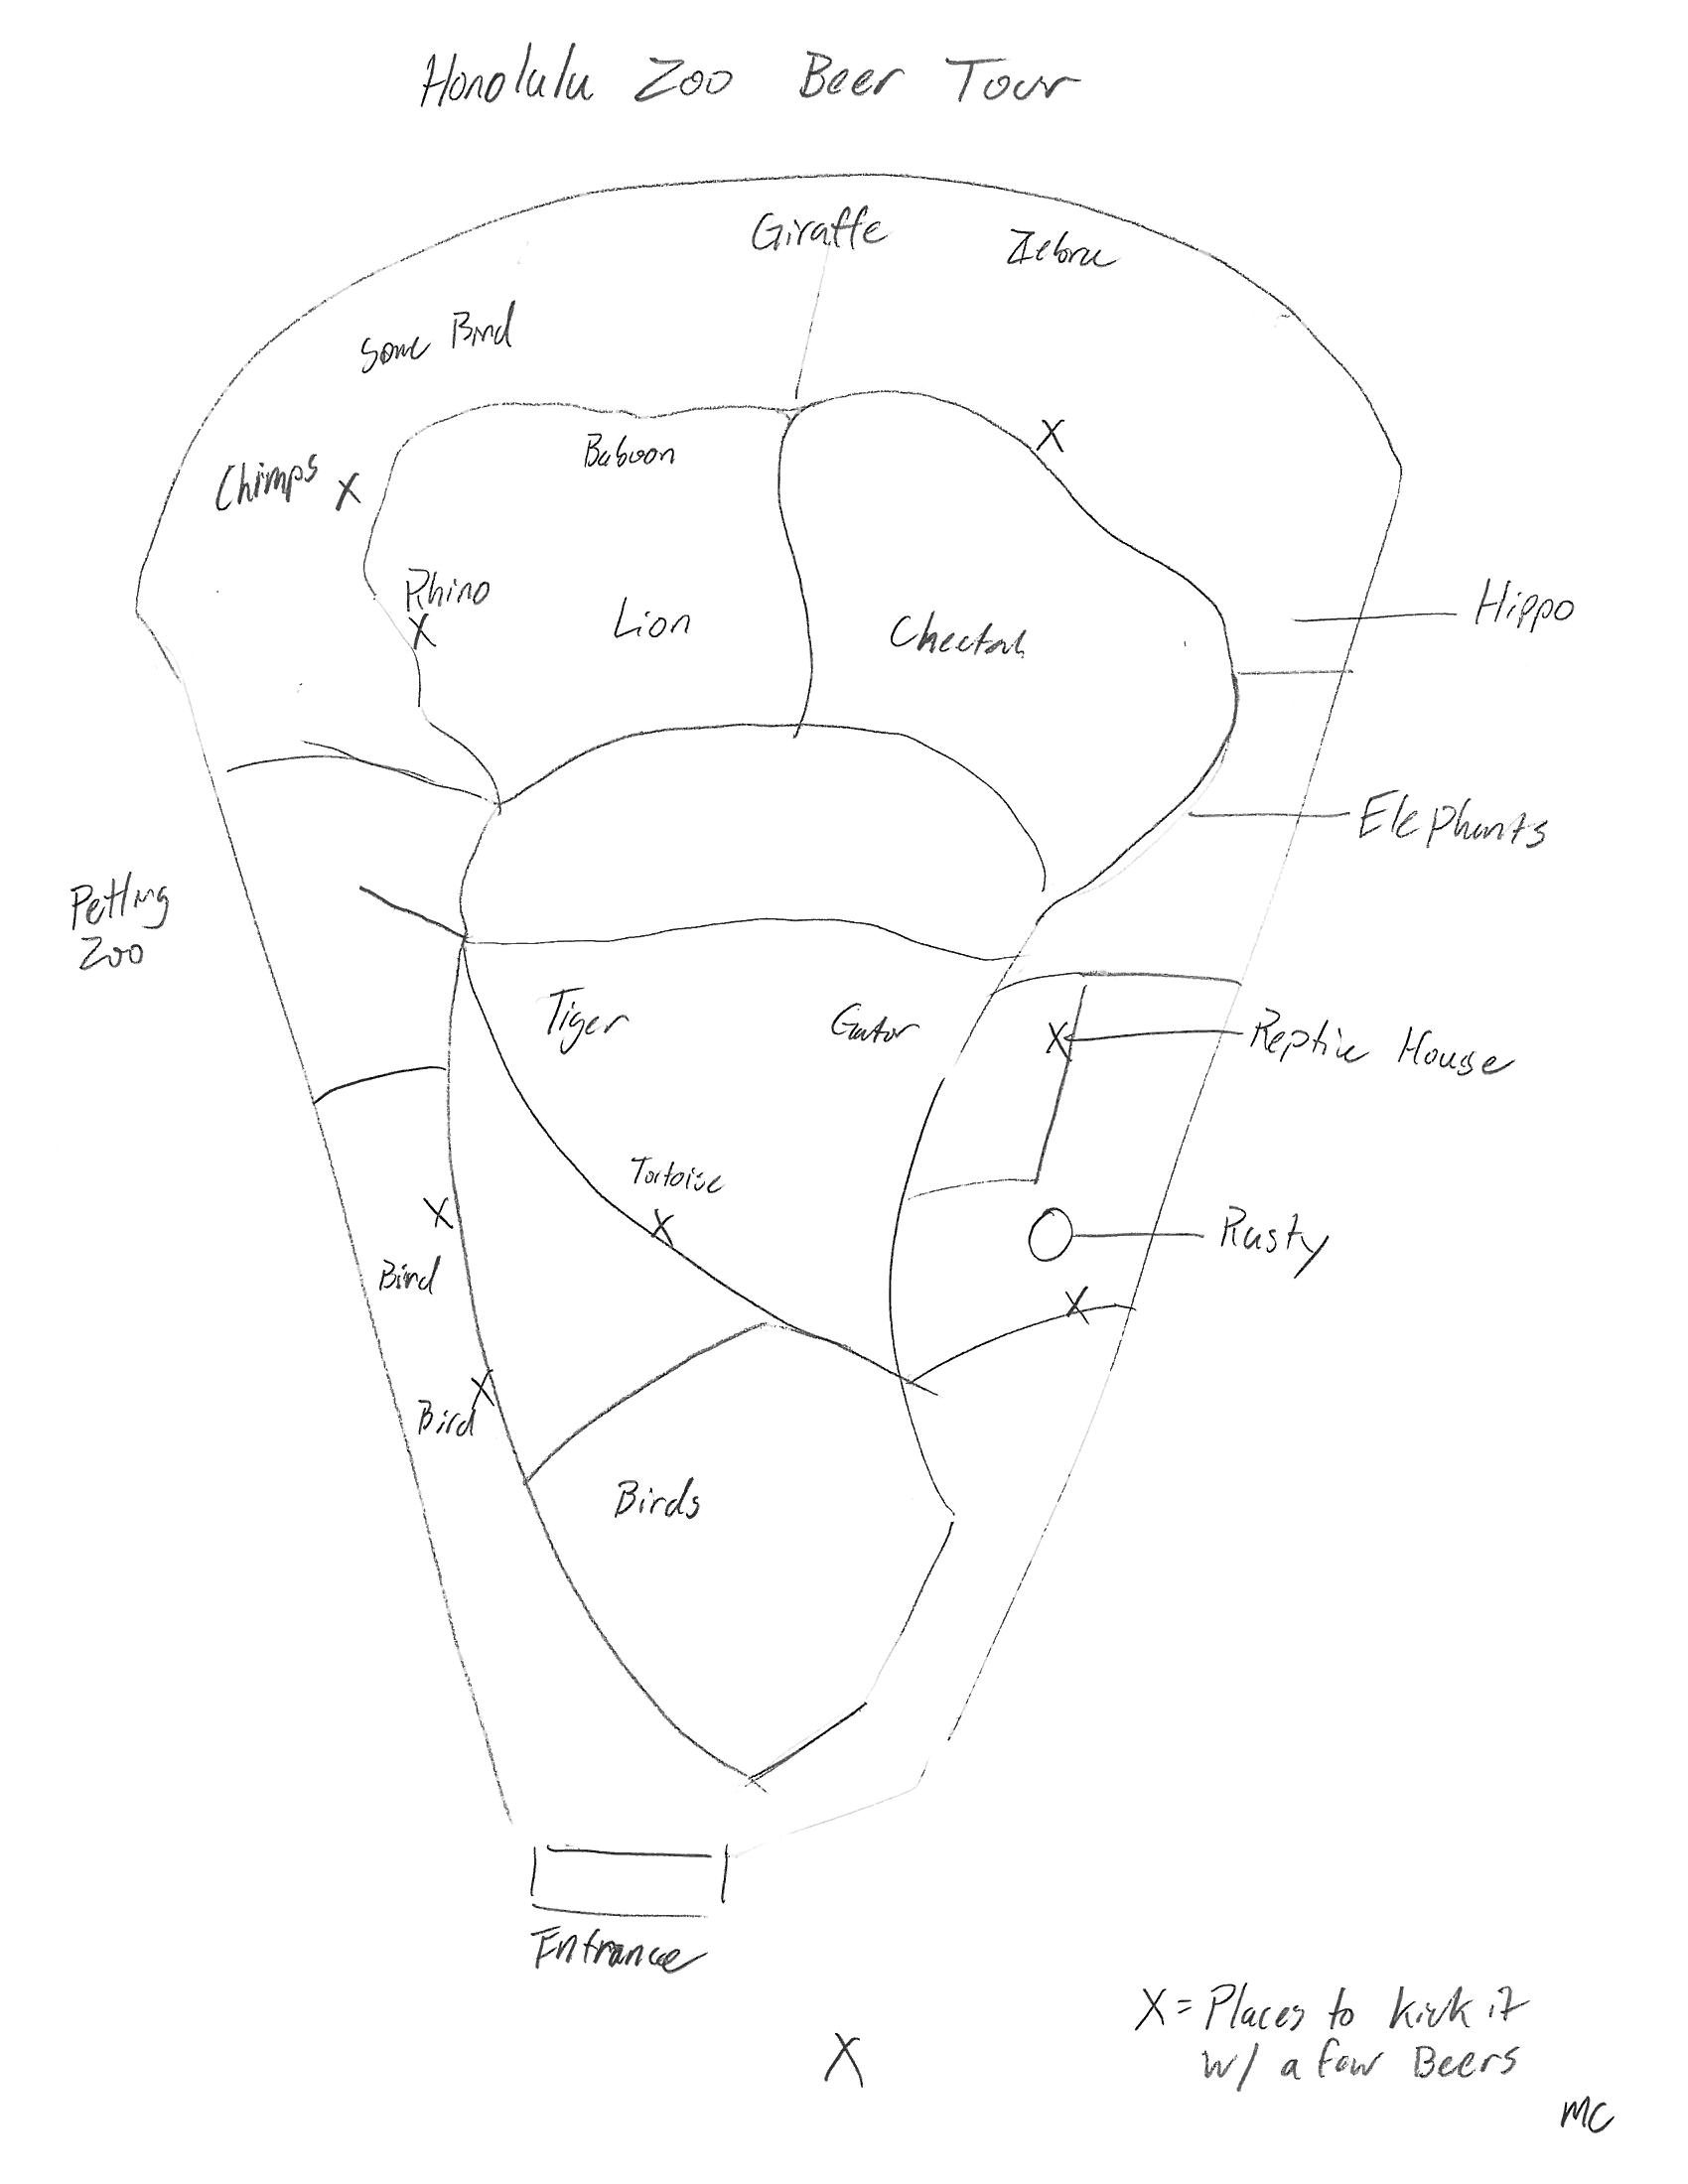 Honolulu Zoo Beer Tour
Giraffe
Zebra
Some Bird
Baboon
Chimps X
X
Rhino
X
Lion
Cheetah
Hippo
Elephants
Petting
Zoo
Tiger
Gator
X
Reptile House
Tortoise
X
X
Rusty
Bird
X
X
Bird
Birds
Entrance
X
X = Places to kick it
w/ a few Beers
MC